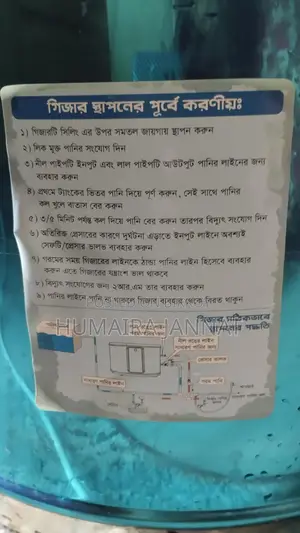 গিজার স্থাপনের পূর্বে করণীয়ঃ
১) গিজারটি সিলিং এর উপর সমতল জায়গায় স্থাপন করুন
২) লিক মুক্ত পানির সংযোগ দিন
৩) নীল পাইপটি ইনপুট এবং লাল পাইপটি আউটপুট পানির লাইনের জন্য
ব্যবহার করুন
৪) প্রথমে ট্যাংকের ভিতর পানি দিয়ে পূর্ণ করুন, সেই সাথে পানির
কল খুলে বাতাস বের করুন
৫) ৩/৫ মিনিট পর্যন্ত কল দিয়ে পানি বের করুন তারপর বিদ্যুৎ সংযোগ দিন
৬) অতিরিক্ত প্রেসারের কারণে দুর্ঘটনা এড়াতে ইনপুট লাইনে অবশ্যই
সেফটি/প্রেসার ভালভ ব্যবহার করুন
৭) গরমের সময় গিজারের লাইনতে ঠান্ডা পানির লাইন হিসেবে ব্যবহার
করুন এতে গিজারের যন্ত্রাংশ ভাল থাকবে
৮) বিদ্যুৎ সংযোগের জন্য ২আর.এম তার ব্যবহার করুন
৯) পানির লাইনে পানি না থাকলে গিজার ব্যবহার থেকে বিরত থাকুন
HUMAIRA JANNAT
গিজার সঠিকভাবে